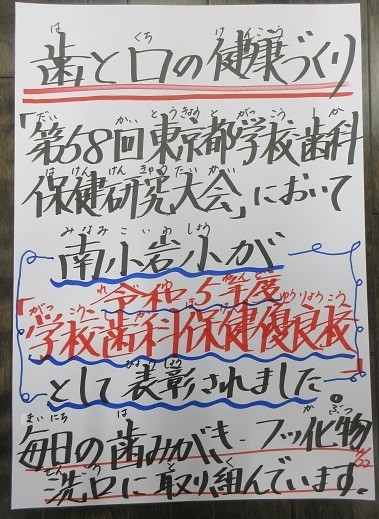 歯と口の健康づくり
「第58回東京都学校歯科
保健研究大会」において
南小岩小が
「令和5年度
学校歯科保健優良校」
として表彰されました。
毎日の歯みがき、フッ化物
洗口に取り組んでいます。